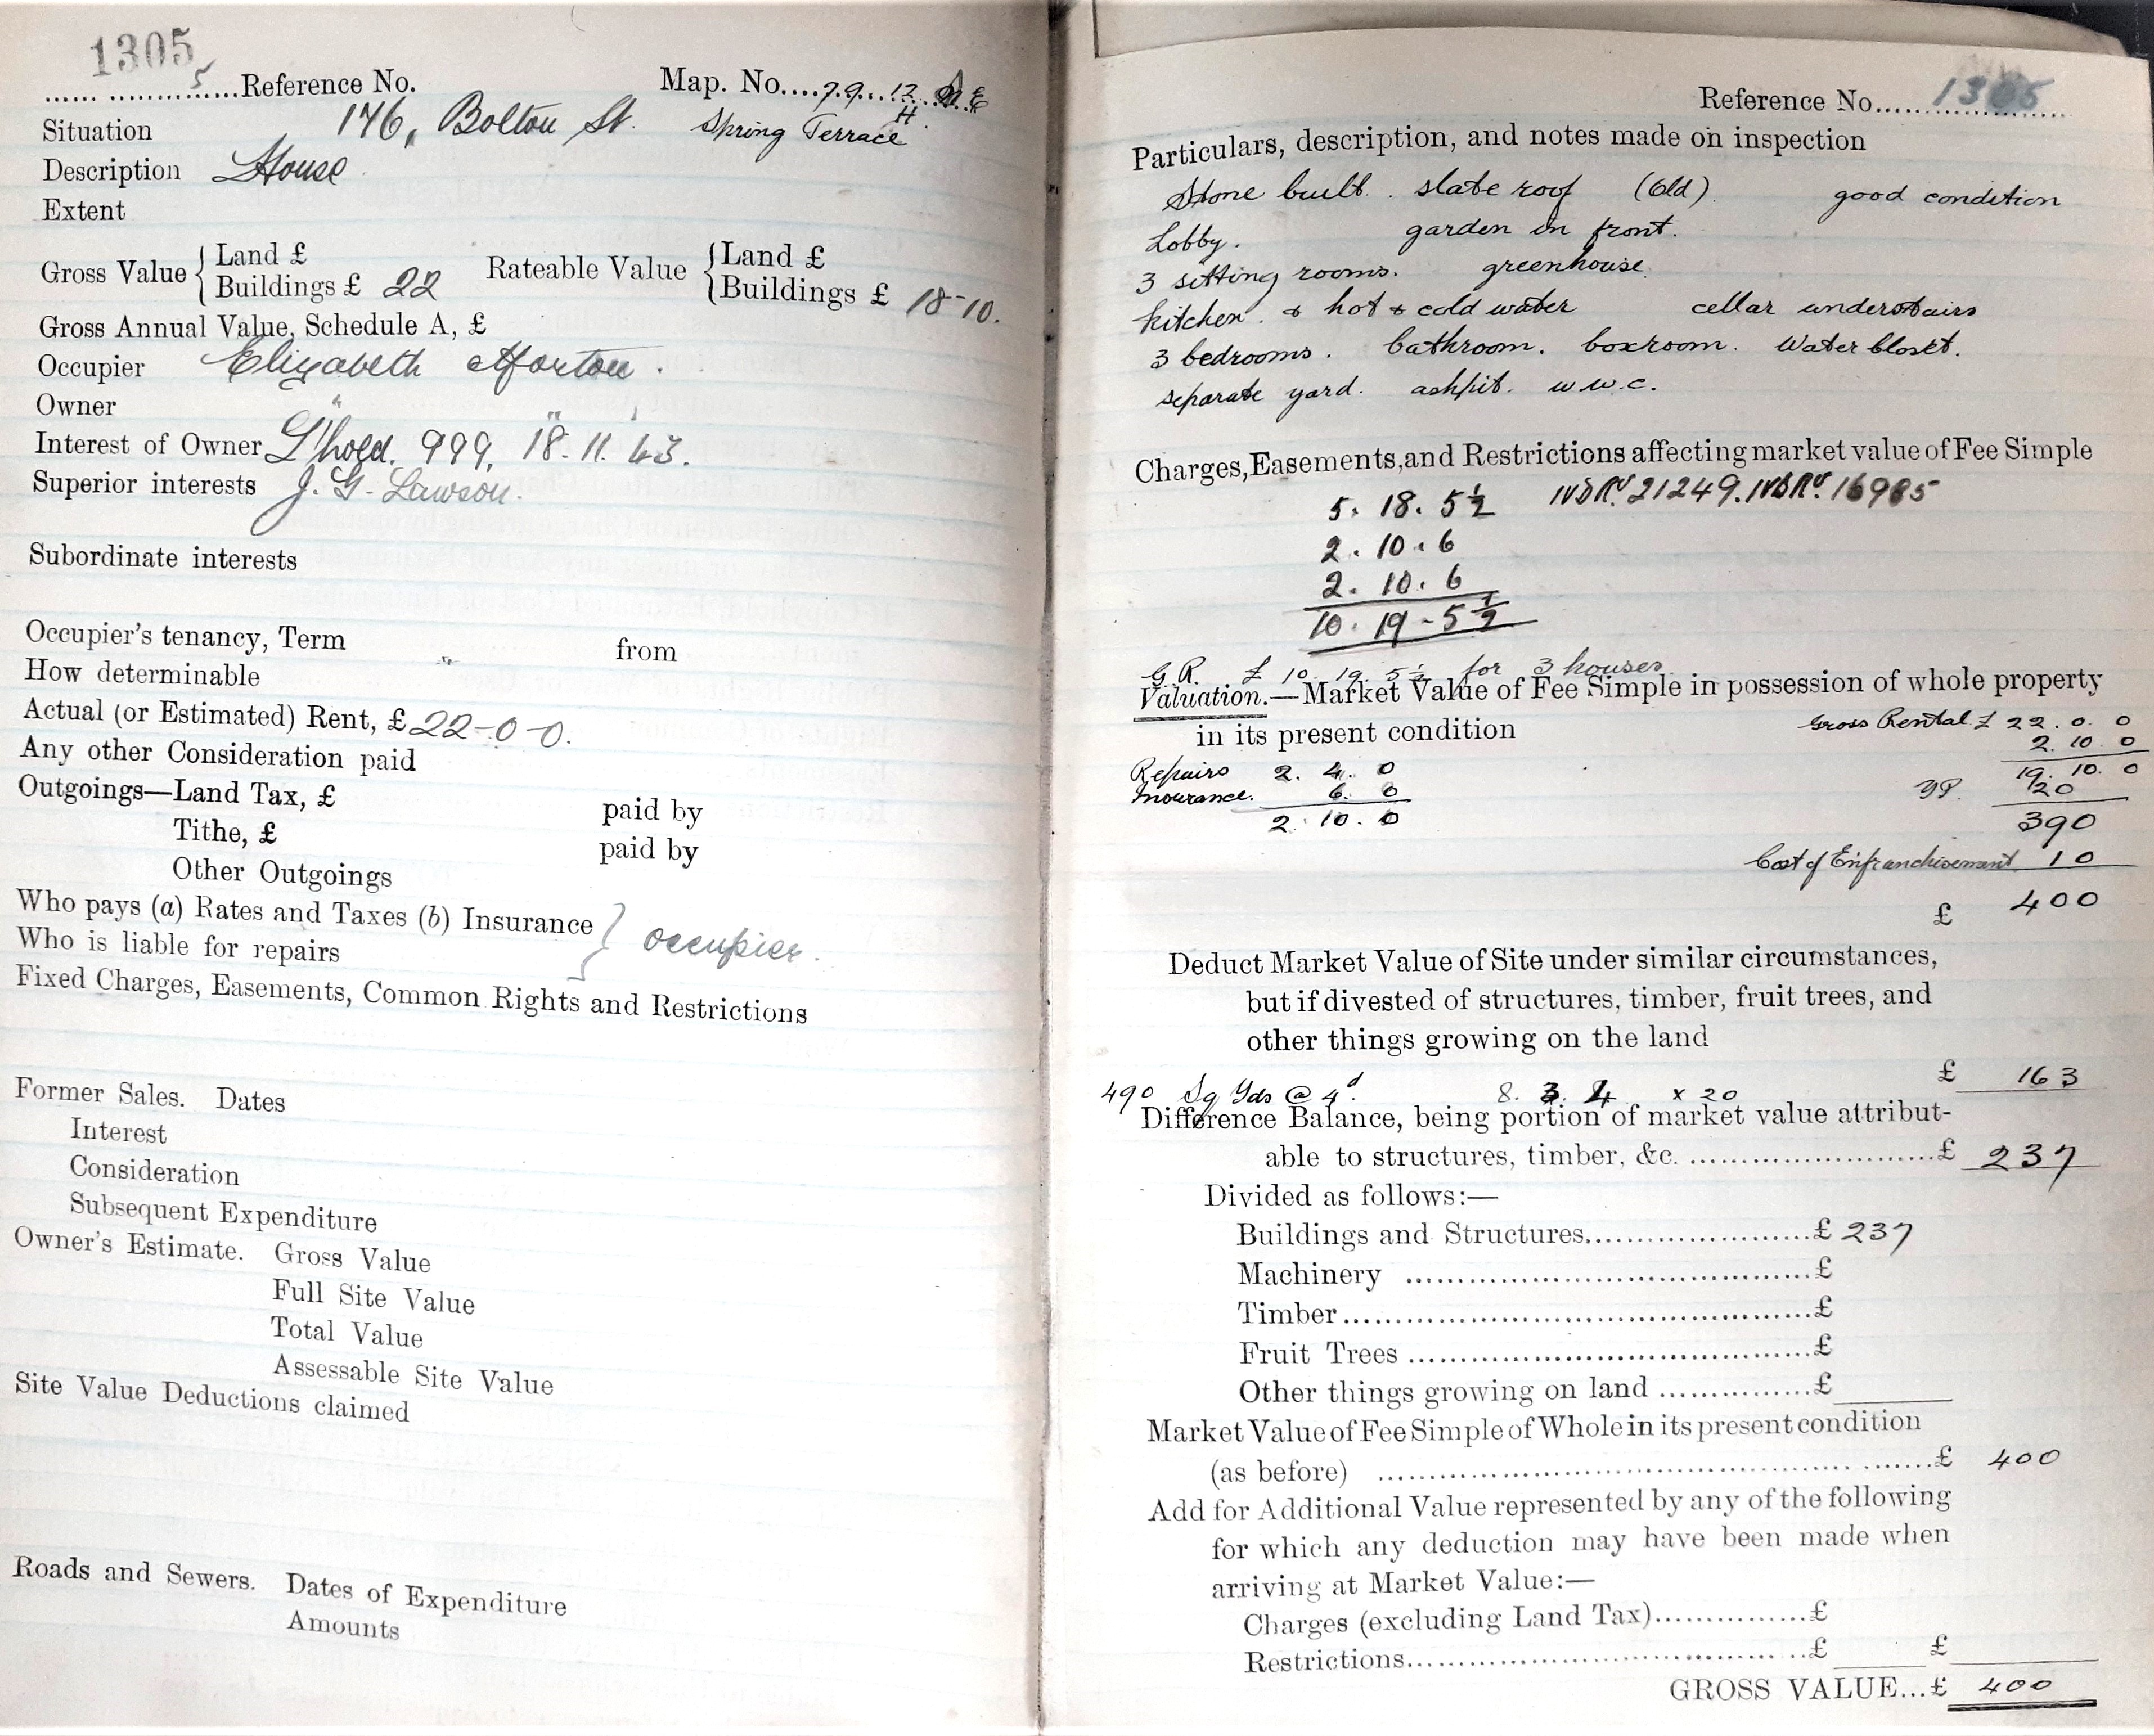 1305
5 Reference No. Map. No. 79.12
Situation 176, Bolton St. Spring Terrace
H
Description House
Extent
Gross Value { Land £
Buildings £ 22
Rateable Value { Land £
Buildings £ 18-10.
Gross Annual Value, Schedule A, £
Occupier Elizabeth
Owner " " "
Interest of Owner L'hold. 999, 18.11.43.
Superior interests J. G. Lawson.
Subordinate interests
Occupier's tenancy, Term from
How determinable
Actual (or Estimated) Rent, £ 22-0-0.
Any other Consideration paid
Outgoings—Land Tax, £ paid by
Tithe, £ paid by
Other Outgoings
Who pays (a) Rates and Taxes (b) Insurance } occupier.
Who is liable for repairs
Fixed Charges, Easements, Common Rights and Restrictions
Former Sales. Dates
Interest
Consideration
Subsequent Expenditure
Owner's Estimate. Gross Value
Full Site Value
Total Value
Assessable Site Value
Site Value Deductions claimed
Roads and Sewers. Dates of Expenditure
Amounts
Reference No. 1305
Particulars, description, and notes made on inspection
Stone built. slate roof (Old) good condition
Lobby. garden in front.
3 sitting rooms. greenhouse
kitchen. & hot & cold water cellar understairs
3 bedrooms. bathroom. boxroom. Water Closet.
separate yard. ashpit. w.w.c.
Charges, Easements, and Restrictions affecting market value of Fee Simple
5. 18. 5½ IVD Rd 21249. IVD Rd. 16985
2. 10. 6
2. 10. 6
10. 19 - 5½
G.R. £ 10. 19. 5½ for 3 houses
Valuation.—Market Value of Fee Simple in possession of whole property
in its present condition
Gross Rental £ 22. 0. 0
2. 10. 0
Repairs 2. 4. 0
19. 10. 0
Insurance. 6. 0
YP. 20
2. 10. 0
390
Cost of Enfranchisement 10
£ 400
Deduct Market Value of Site under similar circumstances,
but if divested of structures, timber, fruit trees, and
other things growing on the land
£ 163
490 Sq Yds @ 4d. 8. 3. 4 x 20
Difference Balance, being portion of market value attribut-
able to structures, timber, &c. £ 237
Divided as follows:—
Buildings and Structures £ 237
Machinery £
Timber £
Fruit Trees £
Other things growing on land £
Market Value of Fee Simple of Whole in its present condition
(as before) £ 400
Add for Additional Value represented by any of the following
for which any deduction may have been made when
arriving at Market Value:—
Charges (excluding Land Tax) £
Restrictions £ £
GROSS VALUE...£ 400